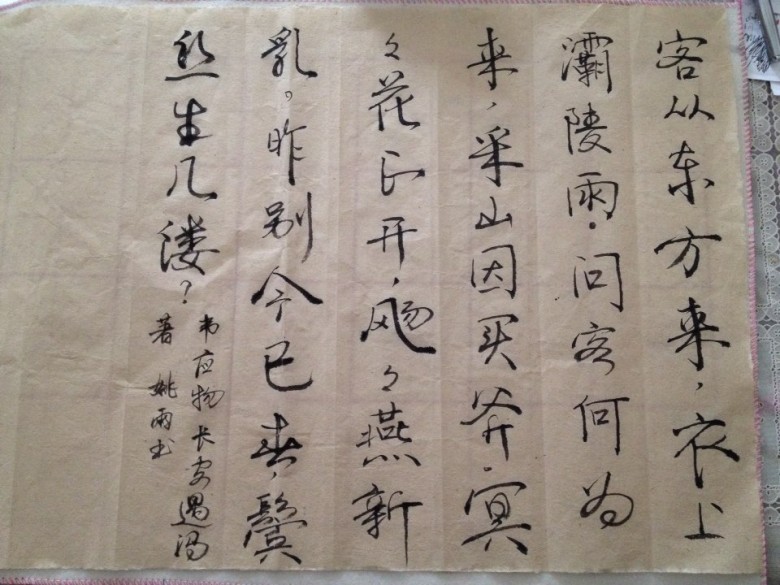 客从东方来，衣上
灞陵雨。问客何为
来，采山因买斧。冥
々花正开，飏々燕新
乳。昨别今已春，鬓
丝生几缕？
韦应物 长安遇冯
著 姚雨书